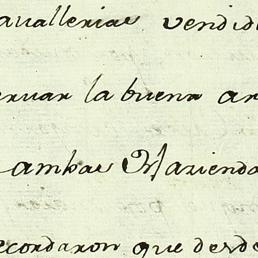 avallerias vendid
ervar la buena ar
ambas Hazienda
ecordaron que desde